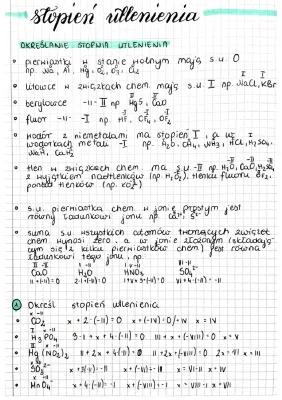 stopień utlenienia
OKREŚLANIE STOPNIA UTLENIENIA
pierwiastki w stanie wolnym mają s.u. 0
np. Na, Al, Hg, O₂, O₃, Cl₂
litowce w związkach chem. mają s.u. I np. NaCl, KBr
berylowce -11- II np HgS, CaO
fluor -11- -I np. HF, CF₄, OF₂
wodór z niemetalami ma stopień I, a w
wodorkach metali -I np. H₂O, CH₄, NH₃, HCl, H₂SO₄,
NaH, CaH₂
tlen w związkach chem. ma s.u. -II np. H₂O, CaO, H₂SO₄
z wyjątkiem nadtlenków (np H₂O₂), tlenku fluoru OF₂,
ponadtlenków (np. KO₂)
s.u. pierwiastka chem. w jonie prostym jest
równy ładunkowi jonu np. Ca²⁺, S²⁻
suma s.u. wszystkich atomów tworzących związek
chem. wynosi zero, a w jonie złożonym (składają-
cym się z kilku pierwiastków chem) jest równa
ładunkowi tego jonu, np.
CaO H₂O HNO₃ SO₄²⁻
II-II=0 2·I-II=0 I+V+3·(-II)=0 VI+4·(-II)=-II
1 Określ stopień utlenienia
CO₂ x+2·(-II)=0 x+(-IV)=0/+IV x=IV
H₃PO₄ 3·I+x+4·(-II)=0 III+x+(-VIII)=0 x=V
x+3(-II)=-II x+(-VI)=-II x=VI-II x=IV
MnO₄⁻ x+4·(-II)=-I x+(-VIII)=-I x=VIII-I x=VII